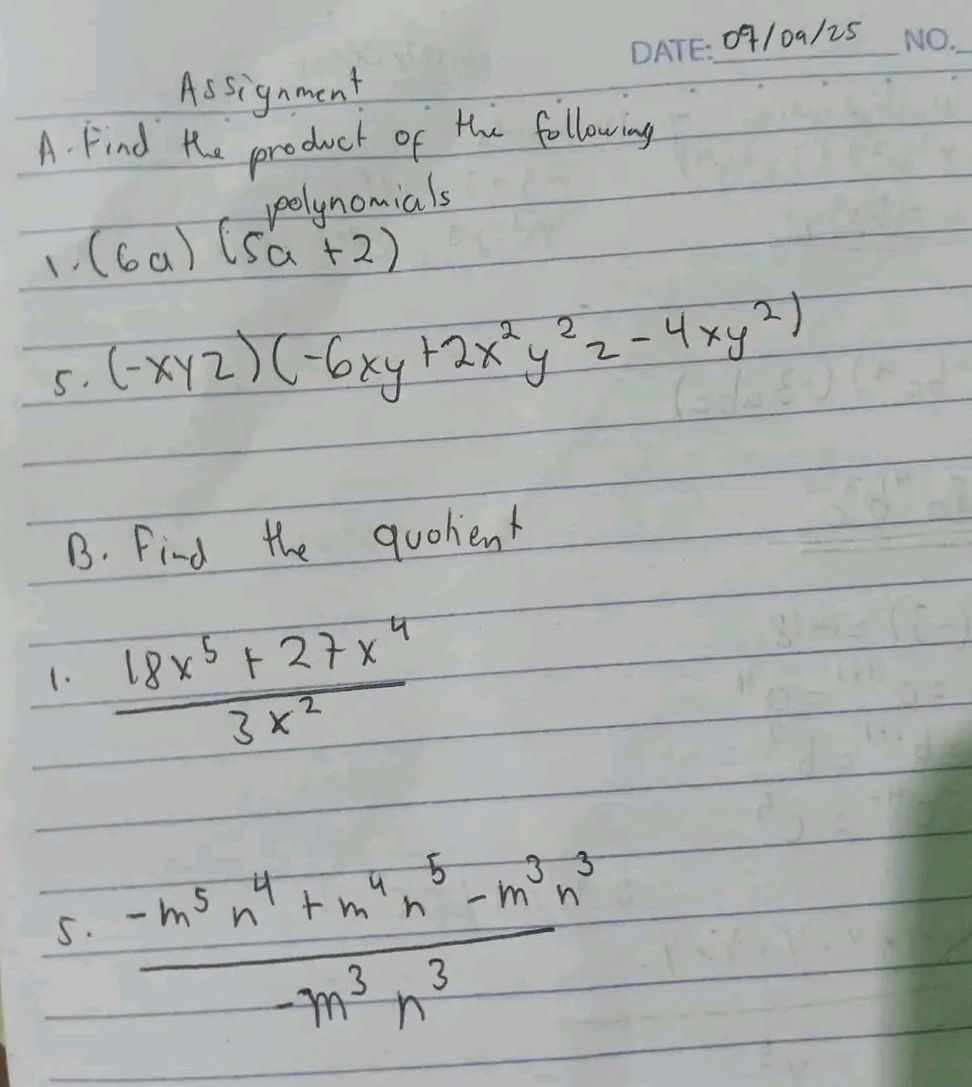 DATE: 09/09/25 NO.
Assignment
A. Find the product of the following
polynomials
1. (6a) (5a + 2)
5. (-xyz) (-6xy + 2x²y²z - 4xy²)
B. Find the quotient
1. 18x⁵ + 27x⁴
3x²
5. -m⁵n⁴ + m⁴n⁵ - m³n³
-m³n³